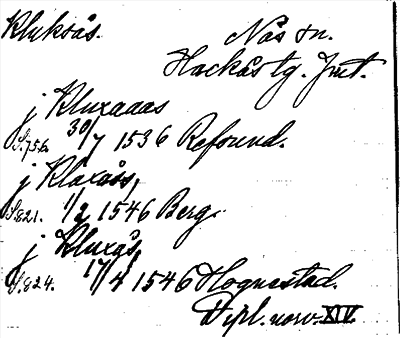 Kluksås. Näs sn.
Hackås tg. Jmt.
j Kluxaaas
S. 756. 30/7 1536 Refsund.
j Klaxaås,
S. 821. 1/2 1546 Berg.
j Kluxås,
S. 824. 17/4 1546 Hognestad.
Dipl. norv. XIV.